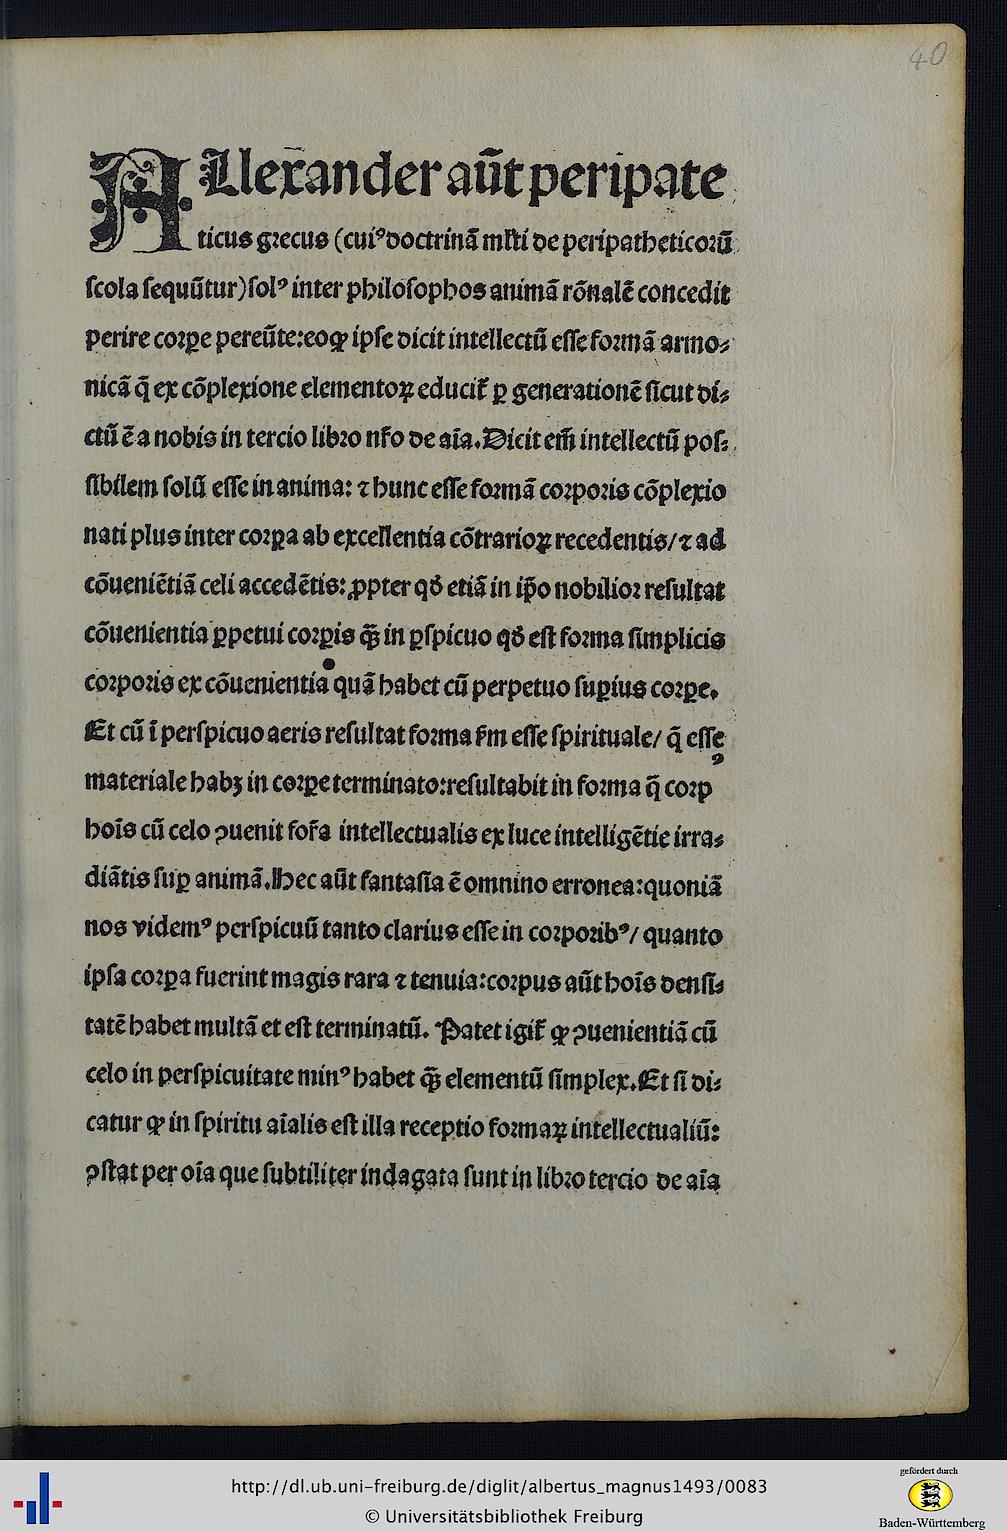 40
ALlexander aūt peripate
ticus grecus (cuiꝰ doctrinā ml̃ti de peripatheticorū
ſcola ſequūtur) ſolꝰ inter philoſophos animā rōnalē concedit
perire corꝑe pereūte: eoꝙ ipſe dicit intellectū eſſe formā armo⸗
nicā q̄ ex cōplexione elementoꝝ educit᷑ ꝑ generationē ſicut di⸗
ctū ē a nobis in tercio libro nr̃o de aīa. Dicit em̄ intellectū poſ⸗
ſibilem ſolū eſſe in anima: ⁊ hunc eſſe formā corporis cōplexio
nati plus inter corꝑa ab excellentia cōtrarioꝝ recedentis/ ⁊ ad
cōueniētiā celi accedētis: ꝓpter qd̓ etiā in ip̄o nobilior reſultat
cōuenientia ꝑpetui corꝑis ꝙ̄ in ꝑſpicuo qd̓ eſt forma ſimplicis
corporis ex cōuenientia quā habet cū perpetuo ſuꝑius corꝑe.
Et cū ī perſpicuo aeris reſultat forma ẜm eſſe ſpirituale/ q̄ eſſe
materiale habꝫ in corꝑe terminato: reſultabit in forma q̄ corpꝰ
hoīs cū celo ꝯuenit for̄a intellectualis ex luce intelligētie irra⸗
diātis ſuꝑ animā. Hec aūt fantaſia ē omnino erronea: quoniā
nos videmꝰ perſpicuū tanto clarius eſſe in corporibꝰ/ quanto
ipſa corꝑa fuerint magis rara ⁊ tenuia: corpus aūt hoīs denſi⸗
tatē habet multā et eſt terminatū. Patet igit᷑ ꝙ ꝯuenientiā cū
celo in perſpicuitate minꝰ habet ꝙ̄ elementū ſimplex. Et ſi di⸗
catur ꝙ in ſpiritu aīalis eſt illa receptio formaꝝ intellectualiū:
ꝯſtat per oīa que ſubtiliter indagata ſunt in libro tercio de aīa
http://dl.ub.uni-freiburg.de/diglit/albertus_magnus1493/0083
© Universitätsbibliothek Freiburg
gefördert durch
Baden-Württemberg